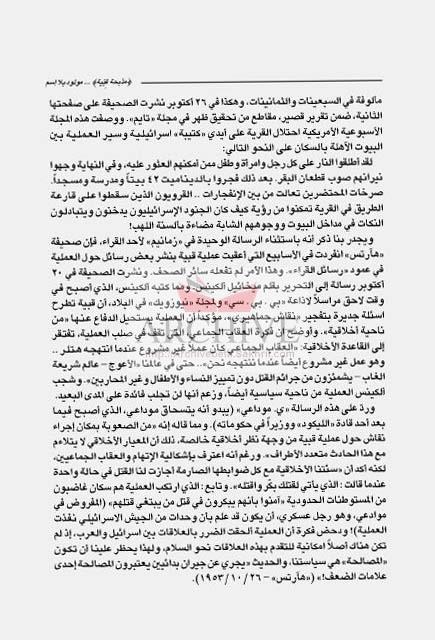 «مذبحة قبية» ... مولود بلا اسم
مألوفة في السبعينات والثمانينات، وهكذا في ٢٦ أكتوبر نشرت الصحيفة على صفحتها
الثانية، ضمن تقرير قصير، مقاطع من تحقيق ظهر في مجلة «تايم». ووصفت هذه المجلة
الأسبوعية الأمريكية احتلال القرية على أيدي «كتيبة» اسرائيلية وسير العملية بين
البيوت الآهلة بالسكان على النحو التالي:
لقد أطلقوا النار على كل رجل وامرأة وطفل ممن أمكنهم العثور عليه، وفي النهاية وجهوا
نيرانهم صوب قطعان البقر. بعد ذلك فجروا بالديناميت ٤٢ بيتاً ومدرسة ومسجداً.
صرخات المحتضرين تعالت من بين الإنفجارات .. القرويون الذين سقطوا على قارعة
الطريق في القرية تمكنوا من رؤية كيف كان الجنود الإسرائيليون يدخنون ويتبادلون
النكات في مداخل البيوت ووجوههم الشابة مضاءة بألسنة اللهب!
ويجدر بنا ذكر أنه باستثناء الرسالة الوحيدة في «زمانيم» لأحد القراء، فإن صحيفة
«هآرتس» انفردت في الأسابيع التي أعقبت عملية قبية بنشر بعض رسائل حول العملية
في عمود «رسائل القراء».. وهذا الأمر لم تفعله سائر الصحف. ونشرت الصحيفة في ٢٠
أكتوبر رسالة إلى التحرير بقلم ميخائيل ألكينس. ومما كتبه ألكينس، الذي أصبح في
وقت لاحق مراسلاً لاذاعة «بي . بي . سي» ولمجلة «نيوزويك» في البلاد، أن قبية تطرح
اسئلة جديرة بتفجير «نقاش جماهيري»، مؤكداً أن العملية يستحيل الدفاع عنها «من
ناحية أخلاقية».. وأوضح أن فكرة العقاب الجماعي، التي تقف في صلب العملية، تفتقر
إلى القاعدة الأخلاقية: «العقاب الجماعي كان عملاً غير مشروع عندما انتهجه هتلر ..
وهو عمل غير مشروع أيضاً عندما ننتهجه نحن».. حتى في عالمنا «الأعوج – عالم شريعة
الغاب – يشمئزون من جرائم القتل دون تمييز النساء والأطفال وغير المحاربين». وشجب
ألكينس العملية من ناحية سياسية أيضاً، وزعم أنها لن تجلب فائدة على المدى البعيد.
ورد على هذه الرسالة «ي. موداعي» (يبدو أنه يتسحاق موداعي، الذي أصبح فيما
بعد أحد قادة «الليكود» ووزيراً في حكوماته). ومما قاله إنه «من الصعوبة بمكان إجراء
نقاش حول عملية قبية من وجهة نظر أخلاقية خالصة، ذلك أن المعيار الأخلاقي لا يتلاءم
مع هذا الحادث متعدد الأطراف».. ورغم أنه اعترف بإشكالية الإتهام والعقاب الجماعيين،
لكنه أكد أن «سنتنا الأخلاقية مع كل ضوابطها الصارمة أجازت لنا القتل في حالة واحدة
عندما قالت : الذي يأتي لقتلك بكّر واقتله». وتابع: الذي ارتكب العملية هم سكان غاضبون
من المستوطنات الحدودية «آمنوا بأنهم يبكرون في قتل من يبتغي قتلهم» (المفروض في
موادعي، وهو رجل عسكري، أن يكون قد علم بأن وحدات من الجيش الاسرائيلي نفذت
العملية)! ودحض فكرة أن العملية ألحقت الضرر بالعلاقات بين اسرائيل والعرب، إذ لم
تكن هناك أصلاً امكانية للتقدم بهذه العلاقات نحو السلام، ولهذا يحظر علينا أن تكون
«المصالحة» هي سياستنا، والحديث «يجري عن جيران بدائيين يعتبرون المصالحة إحدى
علامات الضعف!» («هآرتس» – ٢٦ / ١٠ / ١٩٥٣).
ARCHIVE